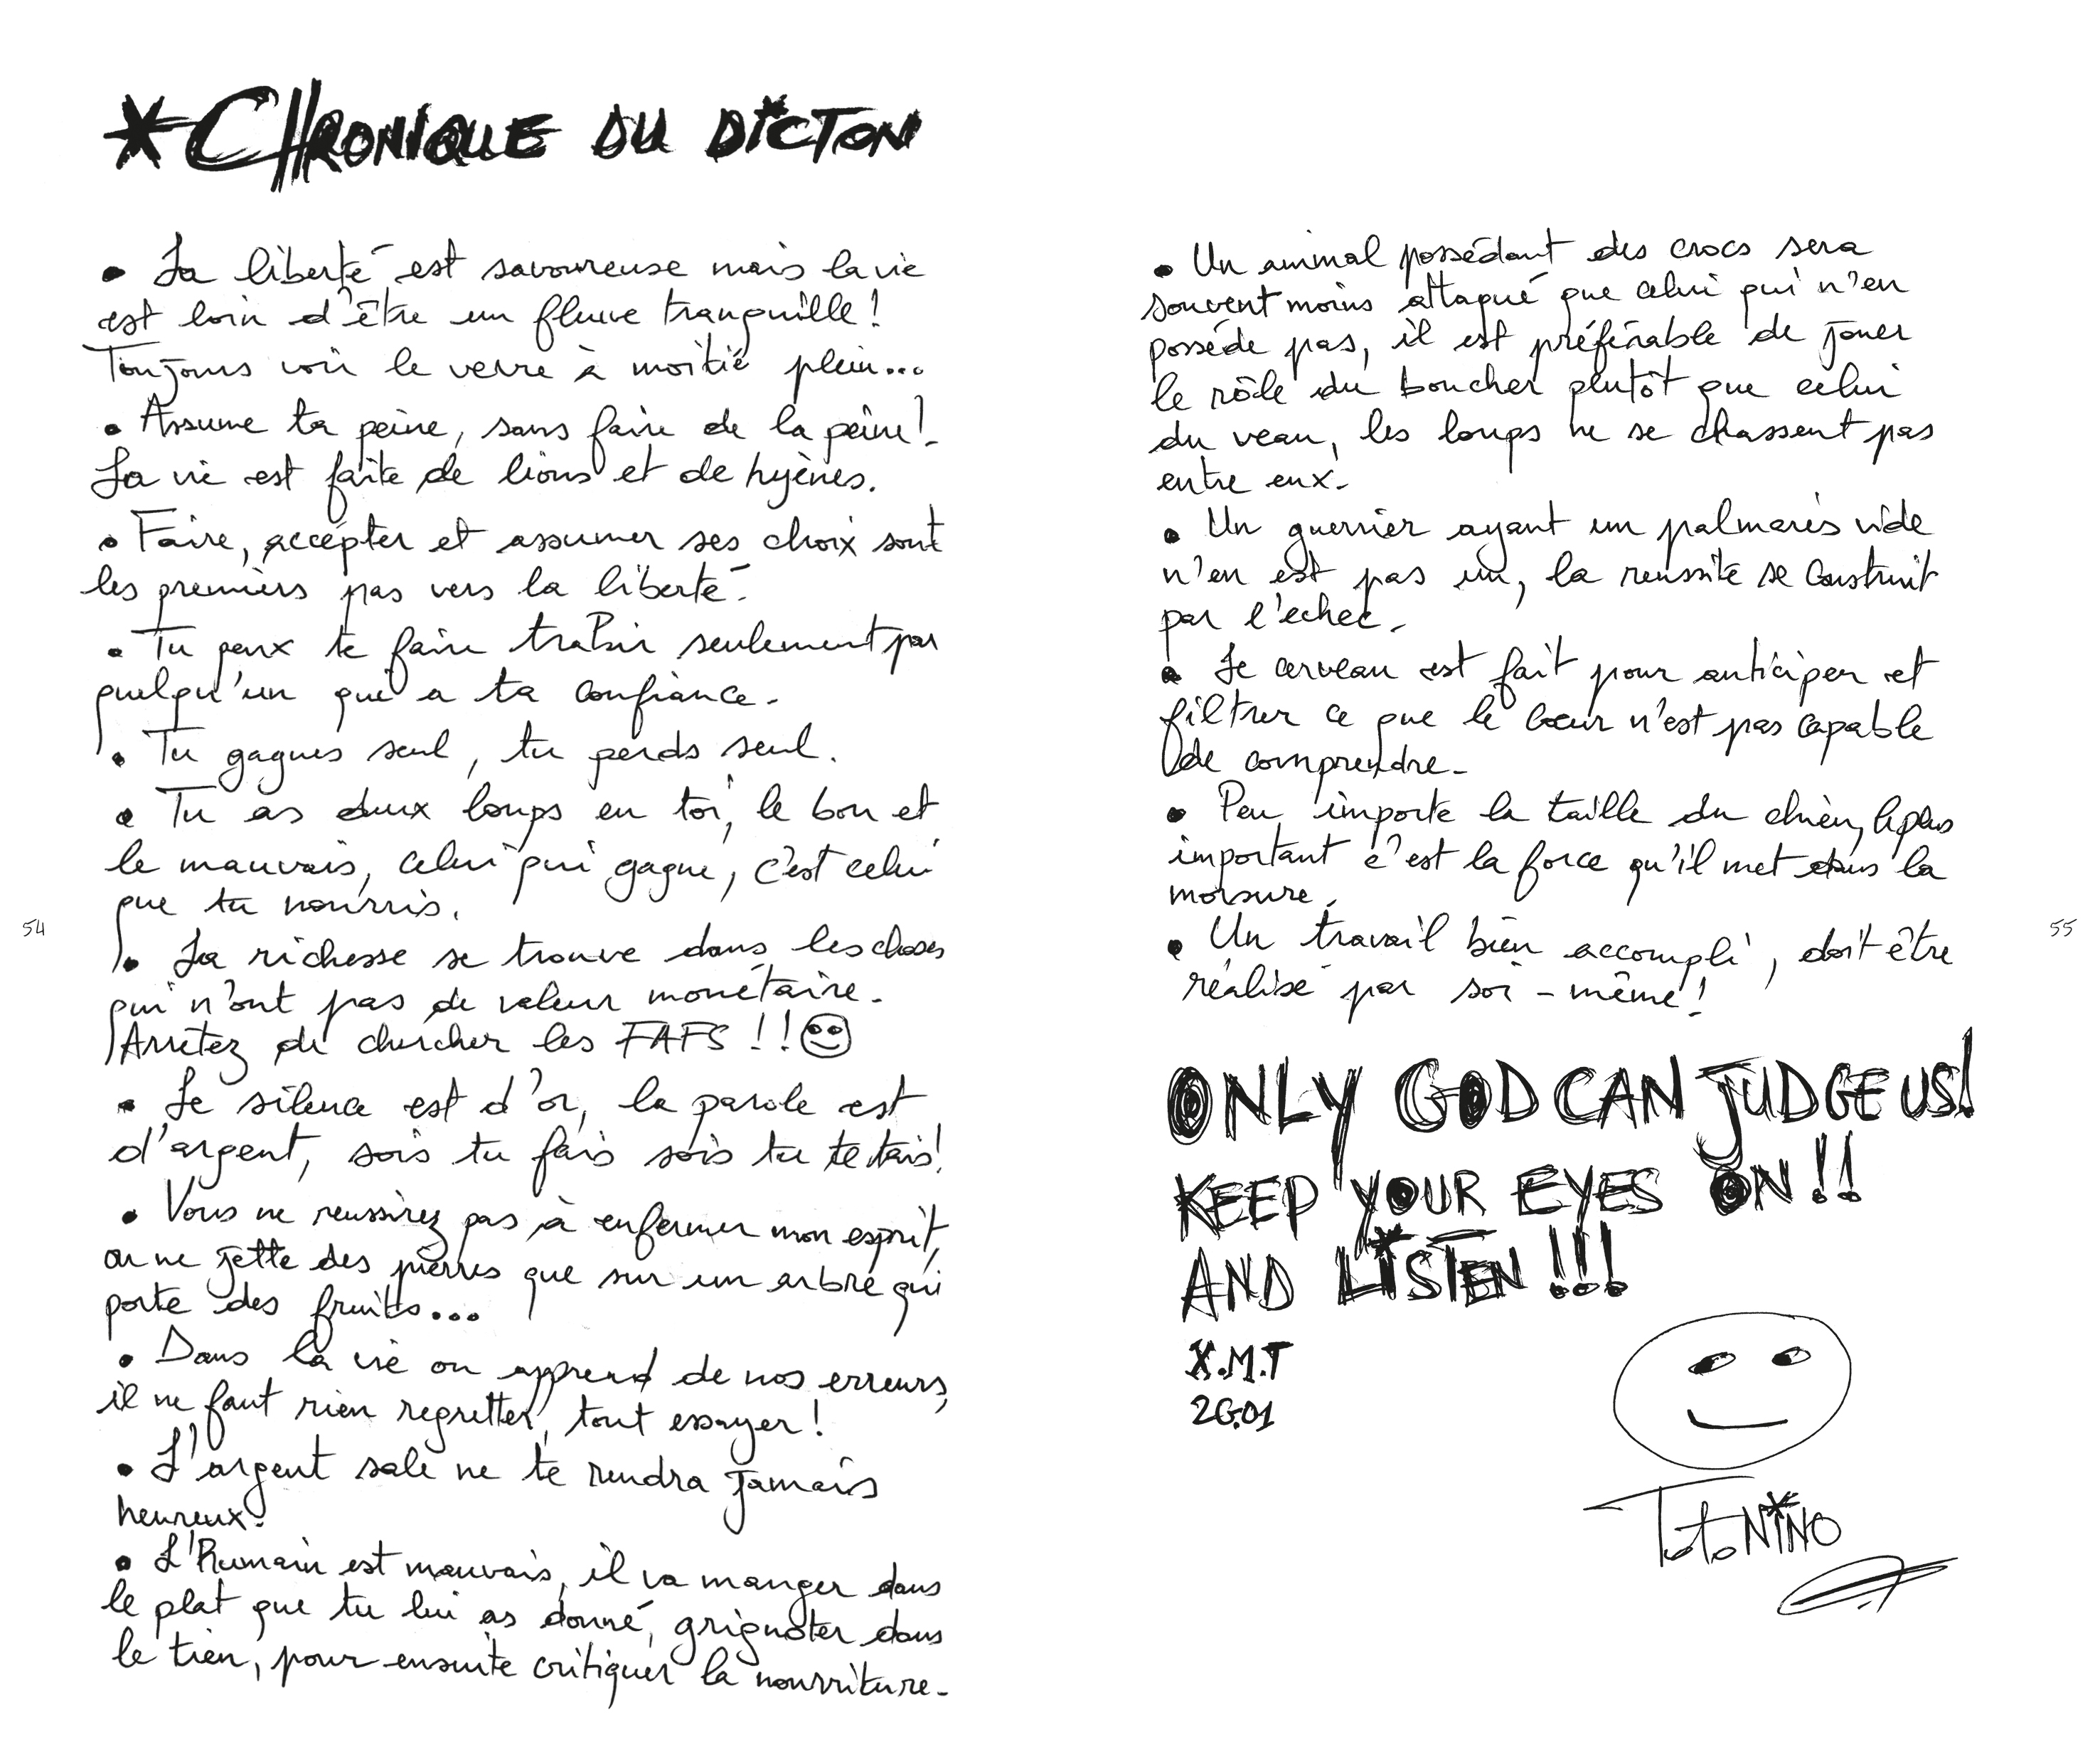 *CHRONIQUE DU DICTON
• La liberté est savoureuse mais la vie
est loin d'être un fleuve tranquille !
Toujours voir le verre à moitié plein...
• Assume ta peine, sans faire de la peine !
La vie est faite de lions et de hyènes.
• Faire, accépter et assumer ses choix sont
les premiers pas vers la liberté.
• Tu peux te faire trahir seulement par
quelqu'un qui a ta confiance.
• Tu gagnes seul, tu perds seul.
• Tu as deux loups en toi, le bon et
le mauvais, celui qui gagne, c'est celui
que tu nourris.
• La richesse se trouve dans les choses
qui n'ont pas de valeur monétaire.
Arretez de chercher les FAFS !!
• Le silence est d'or, la parole est
d'argent, sois tu fais sois tu te tais !
• Vous ne reussirez pas à enfermer mon esprit,
on ne jette des pierres que sur un arbre qui
porte des fruits...
• Dans la vie on apprend de nos erreurs,
il ne faut rien regretter, tout essayer !
• L'argent sale ne te rendra jamais
heureux.
• L'Humain est mauvais, il va manger dans
le plat que tu lui as donné, grignoter dans
le tien, pour ensuite critiquer la nourriture.
54
• Un animal possédant des crocs sera
souvent moins attaqué que celui qui n'en
posséde pas, il est préférable de jouer
le rôle du boucher plutôt que celui
du veau, les loups ne se chassent pas
entre eux.
• Un guerrier ayant un palmarès vide
n'en est pas un, la reussite se construit
par l'echec.
• Le cerveau est fait pour anticiper et
filtrer ce que le cœur n'est pas capable
de comprendre.
• Peu importe la taille du chien, le plus
important c'est la force qu'il met dans la
morsure.
• Un travail bien accompli, doit être
réalisé par soi-même !
ONLY GOD CAN JUDGE US!
KEEP YOUR EYES ON!!
AND LISTEN!!!
X.M.T
2G.01
TotoNiNO
55